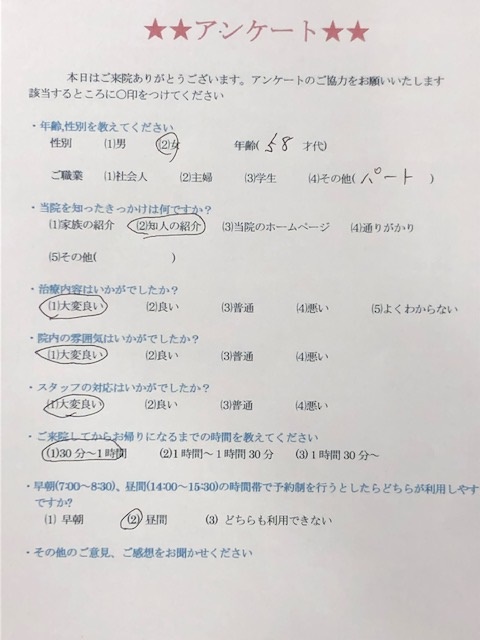 ★★アンケート★★
本日はご来院ありがとうございます。アンケートのご協力をお願いいたします
該当するところに〇印をつけてください
・年齢,性別を教えてください
性別 (1)男 (2)女 年齢( 58 才代)
ご職業 (1)社会人 (2)主婦 (3)学生 (4)その他( パート )
・当院を知ったきっかけは何ですか?
(1)家族の紹介 (2)知人の紹介 (3)当院のホームページ (4)通りがかり
(5)その他( )
・治療内容はいかがでしたか?
(1)大変良い (2)良い (3)普通 (4)悪い (5)よくわからない
・院内の雰囲気はいかがでしたか?
(1)大変良い (2)良い (3)普通 (4)悪い
・スタッフの対応はいかがでしたか?
(1)大変良い (2)良い (3)普通 (4)悪い
・ご来院してからお帰りになるまでの時間を教えてください
(1)30分～1時間 (2)1時間～1時間30分 (3)1時間30分～
・早朝(7:00～8:30)、昼間(14:00～15:30)の時間帯で予約制を行うとしたらどちらが利用しやす
ですか?
(1) 早朝 (2) 昼間 (3) どちらも利用できない
・その他のご意見、ご感想をお聞かせください